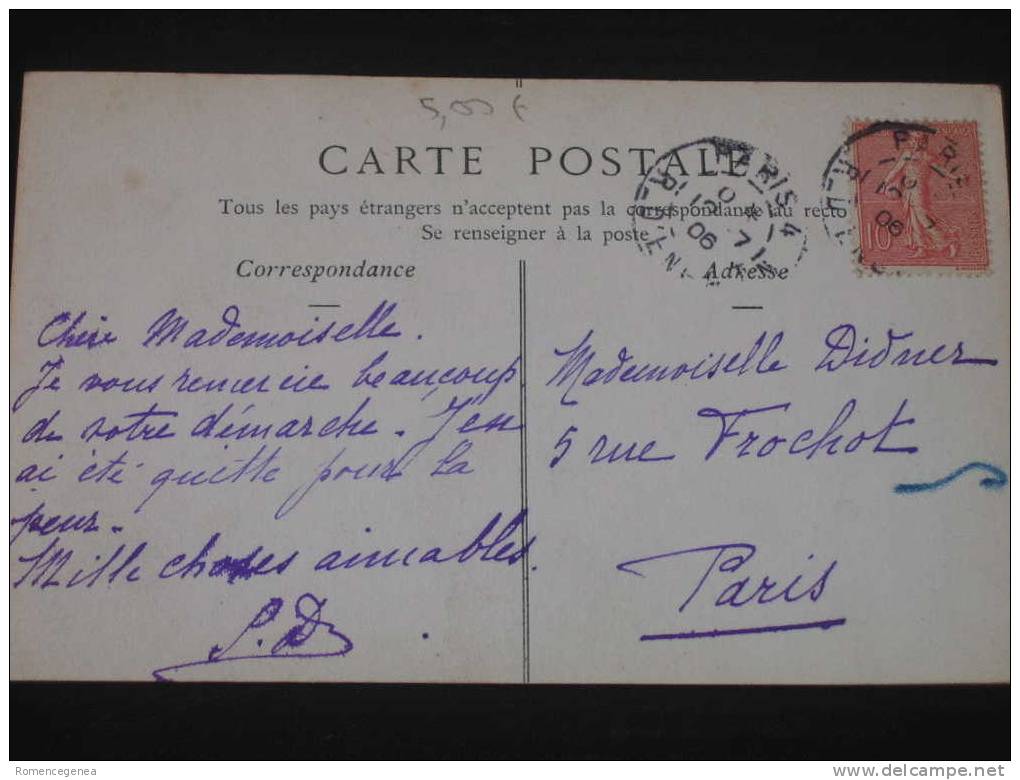 5,00 €
CARTE POSTALE
Tous les pays étrangers n'acceptent pas la correspondance au recto
Se renseigner à la poste
Correspondance
Chère Mademoiselle.
Je vous remercie beaucoup
de votre démarche. J'en
ai été quitte pour la
peur.
Mille choses aimables.
S. D
Adresse
Mademoiselle Didner
5 rue Frochot
Paris
PARIS 4
06
PARIS
06
10
Romencegenea
www.delcampe.net